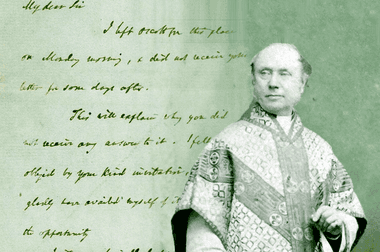 My dear Sir
I left Oscott for this place
on Monday morning, & did not receive your
letter for some days after.
This will explain why you did
not receive any answer to it. I felt
obliged by your kind invitation,
gladly have availed myself of it
the opportunity